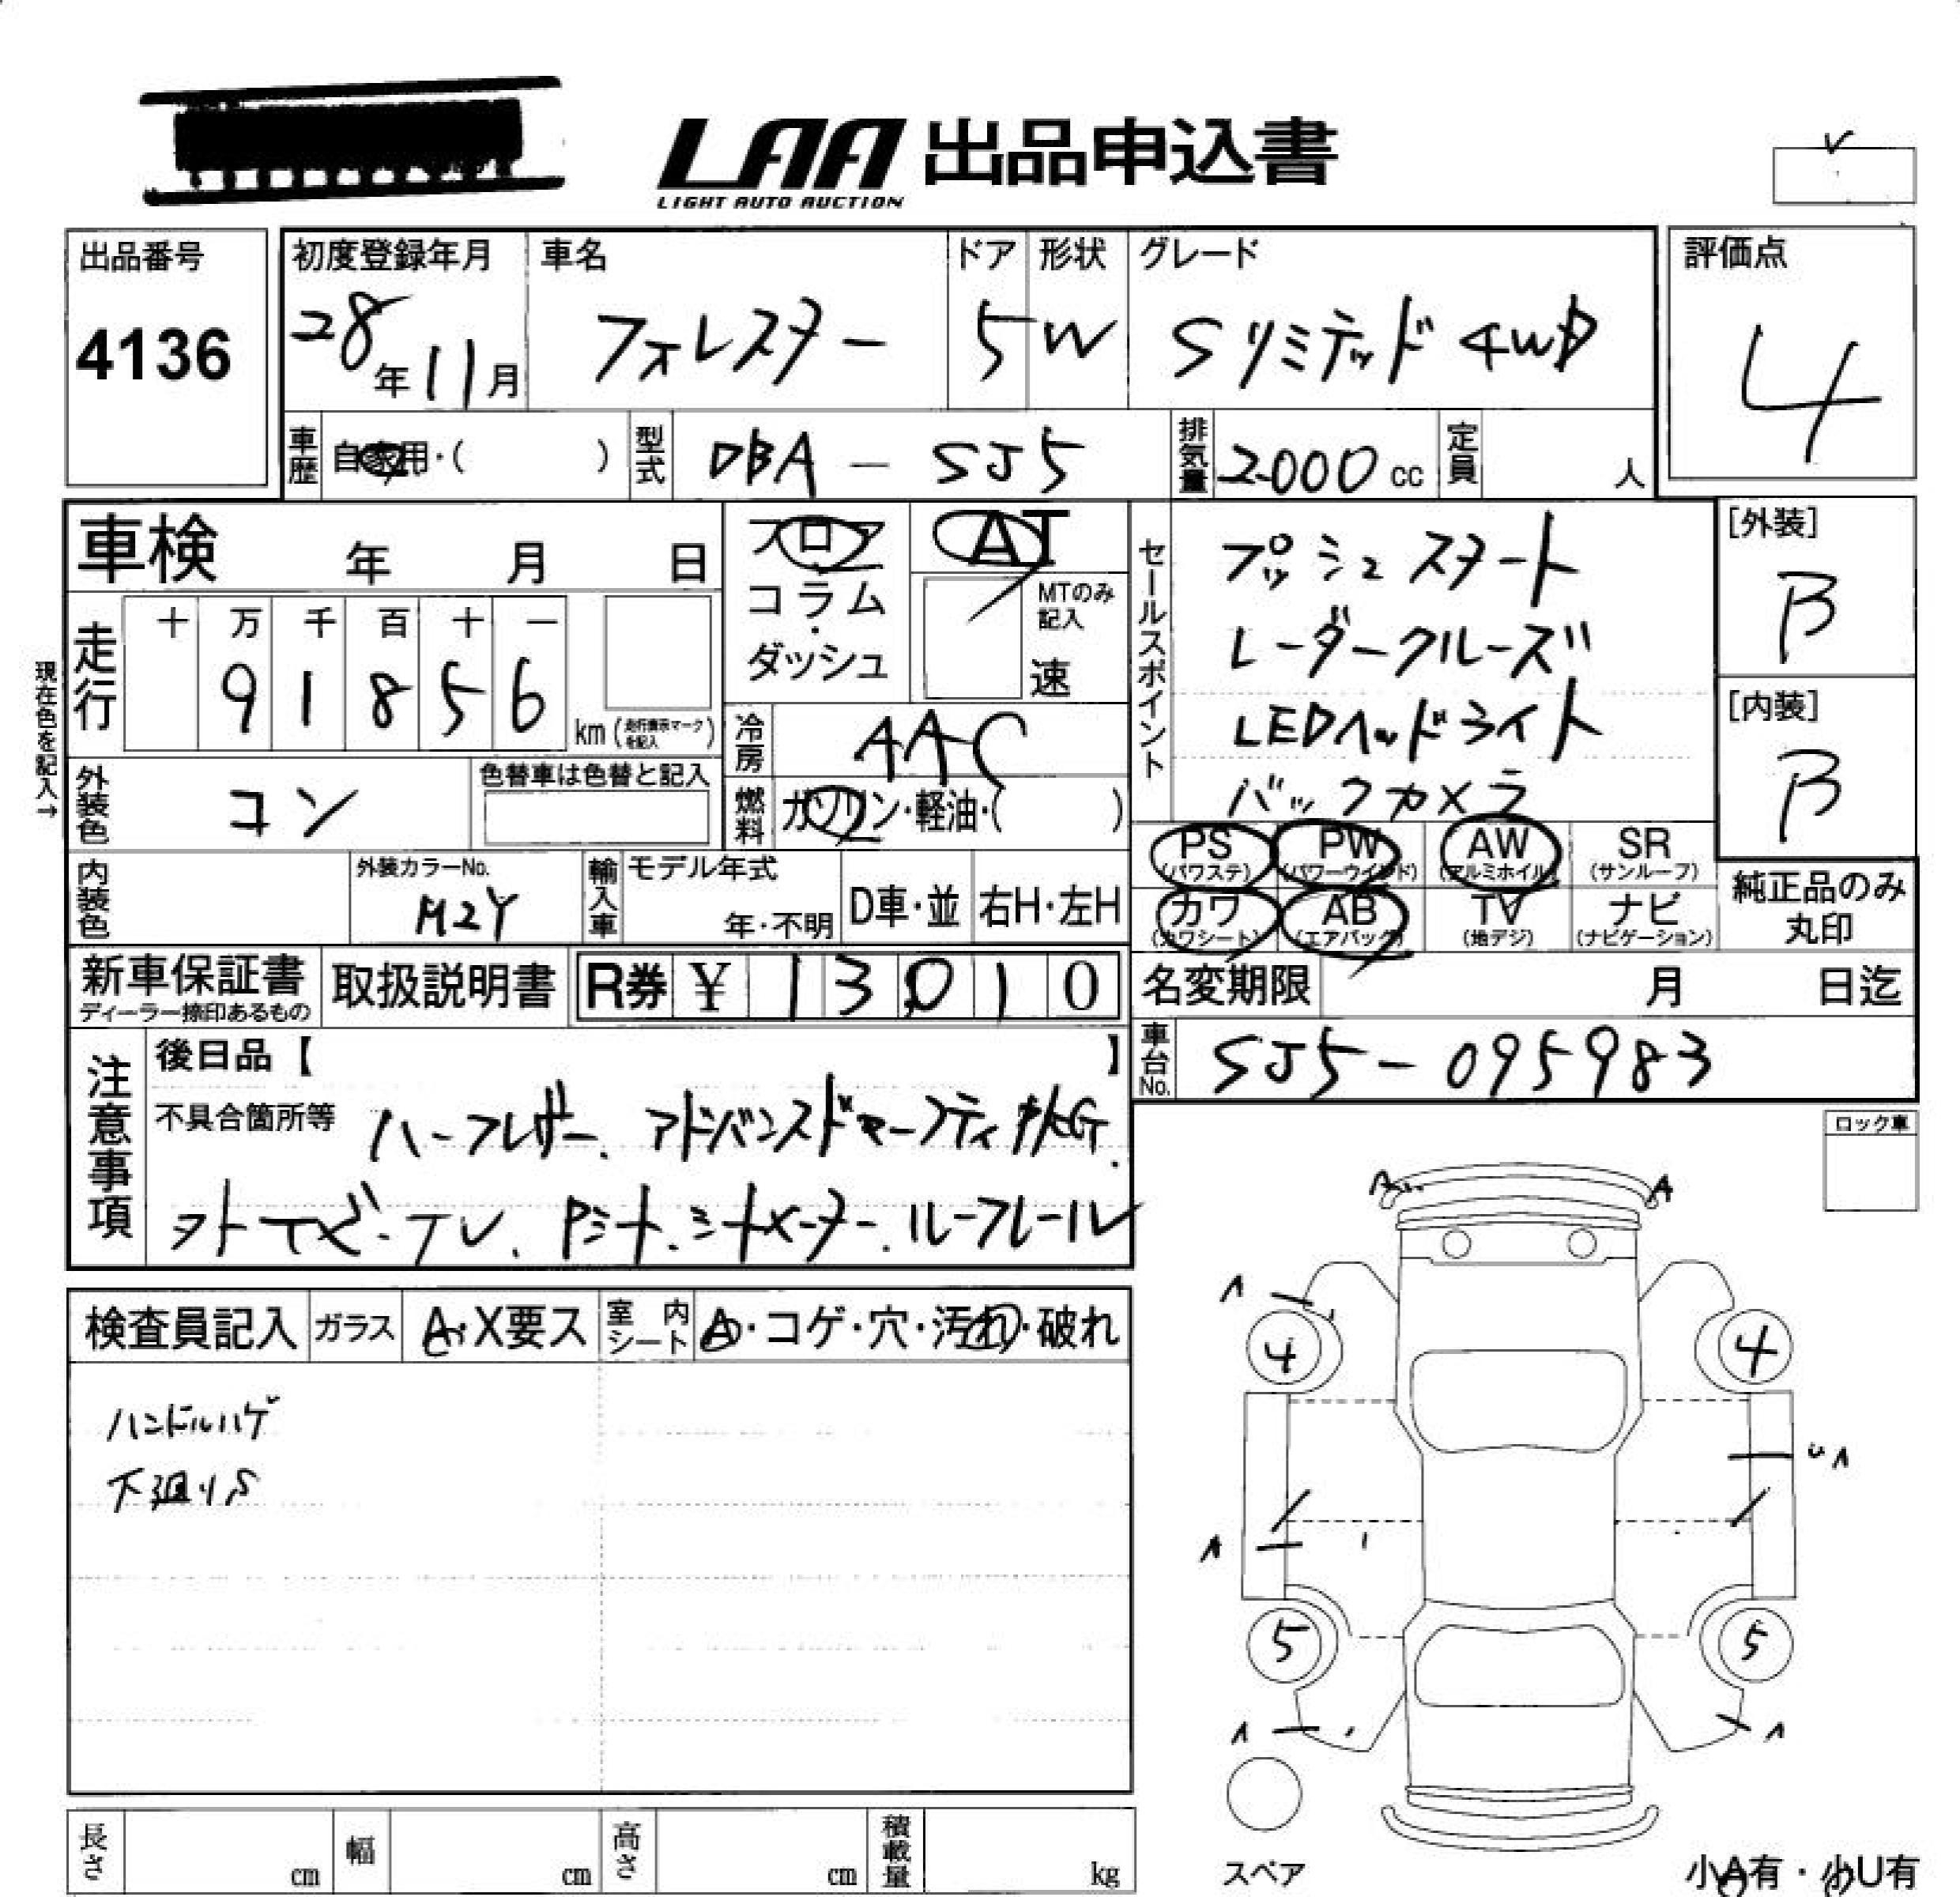 LAA 出品申込書
LIGHT AUTO AUCTION
出品番号
4136
初度登録年月
28年11月
車名
フォレスター
ドア
5
形状
W
グレード
Sリミテッド 4WD
評価点
4
車歴
自家用・( )
型式
DBA-SJ5
排気量
2000cc
定員
人
車検 年 月 日
フロア
コラム
・
ダッシュ
AT
MTのみ記入
速
セールスポイント
プッシュスタート
レーダークルーズ
LEDヘッドライト
バックカメラ
[外装]
B
[内装]
B
現在色を記入→
走行
十 万 千 百 十 一
9 1 8 5 6
km(走行表示マークを記入)
冷房
AAC
燃料
ガソリン・軽油・( )
外装色
コン
色替車は色替と記入
内装色
外装カラーNo.
M2Y
輸入車
モデル年式
年・不明
D車・並
右H・左H
PS
(パワステ)
PW
(パワーウインド)
AW
(アルミホイル)
SR
(サンルーフ)
カワ
(カワシート)
AB
(エアバッグ)
TV
(地デジ)
ナビ
(ナビゲーション)
純正品のみ
丸印
新車保証書
ディーラー捺印あるもの
取扱説明書
R券 ¥ 13010
名変期限 月 日迄
車台No.
SJ5-095983
注意事項
後日品【 】
不具合箇所等 ハーフレザー、アドバンスドセーフティPKG、
ナビ・TV、Pシート、シートメーター、ルーフレール
ロック車
検査員記入
ガラス
A・X要ス
室内シート
A・コゲ・穴・汚れ・破れ
ハンドルハゲ
下廻りS
A
A
A
4
4
A
A
5
5
A
A
スペア
小A有・小U有
長さ cm
幅 cm
高さ cm
積載量 kg